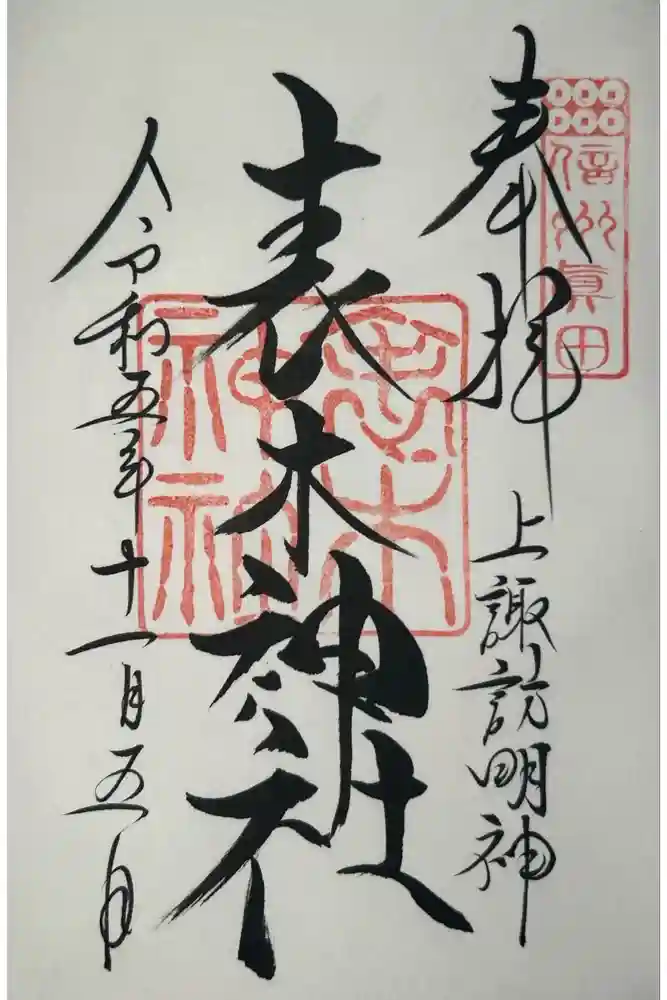 奉拝
信州眞田
上諏訪明神
表木神社
令和五年十一月五日